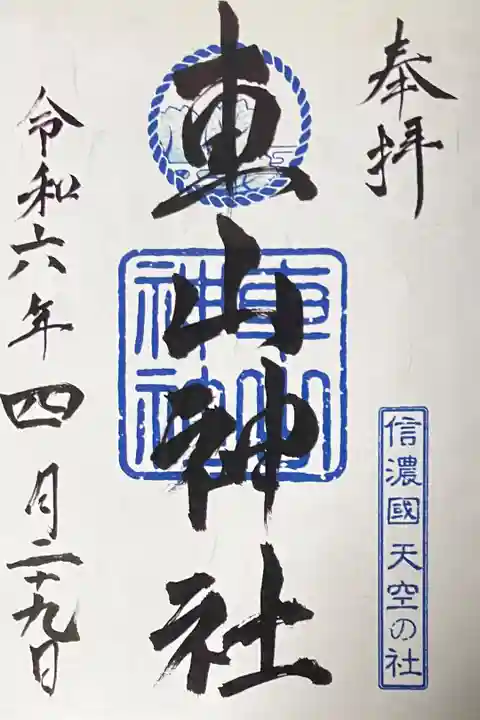 奉拝
車山神社
車山
神社
信濃國 天空の社
令和六年四月二十九日